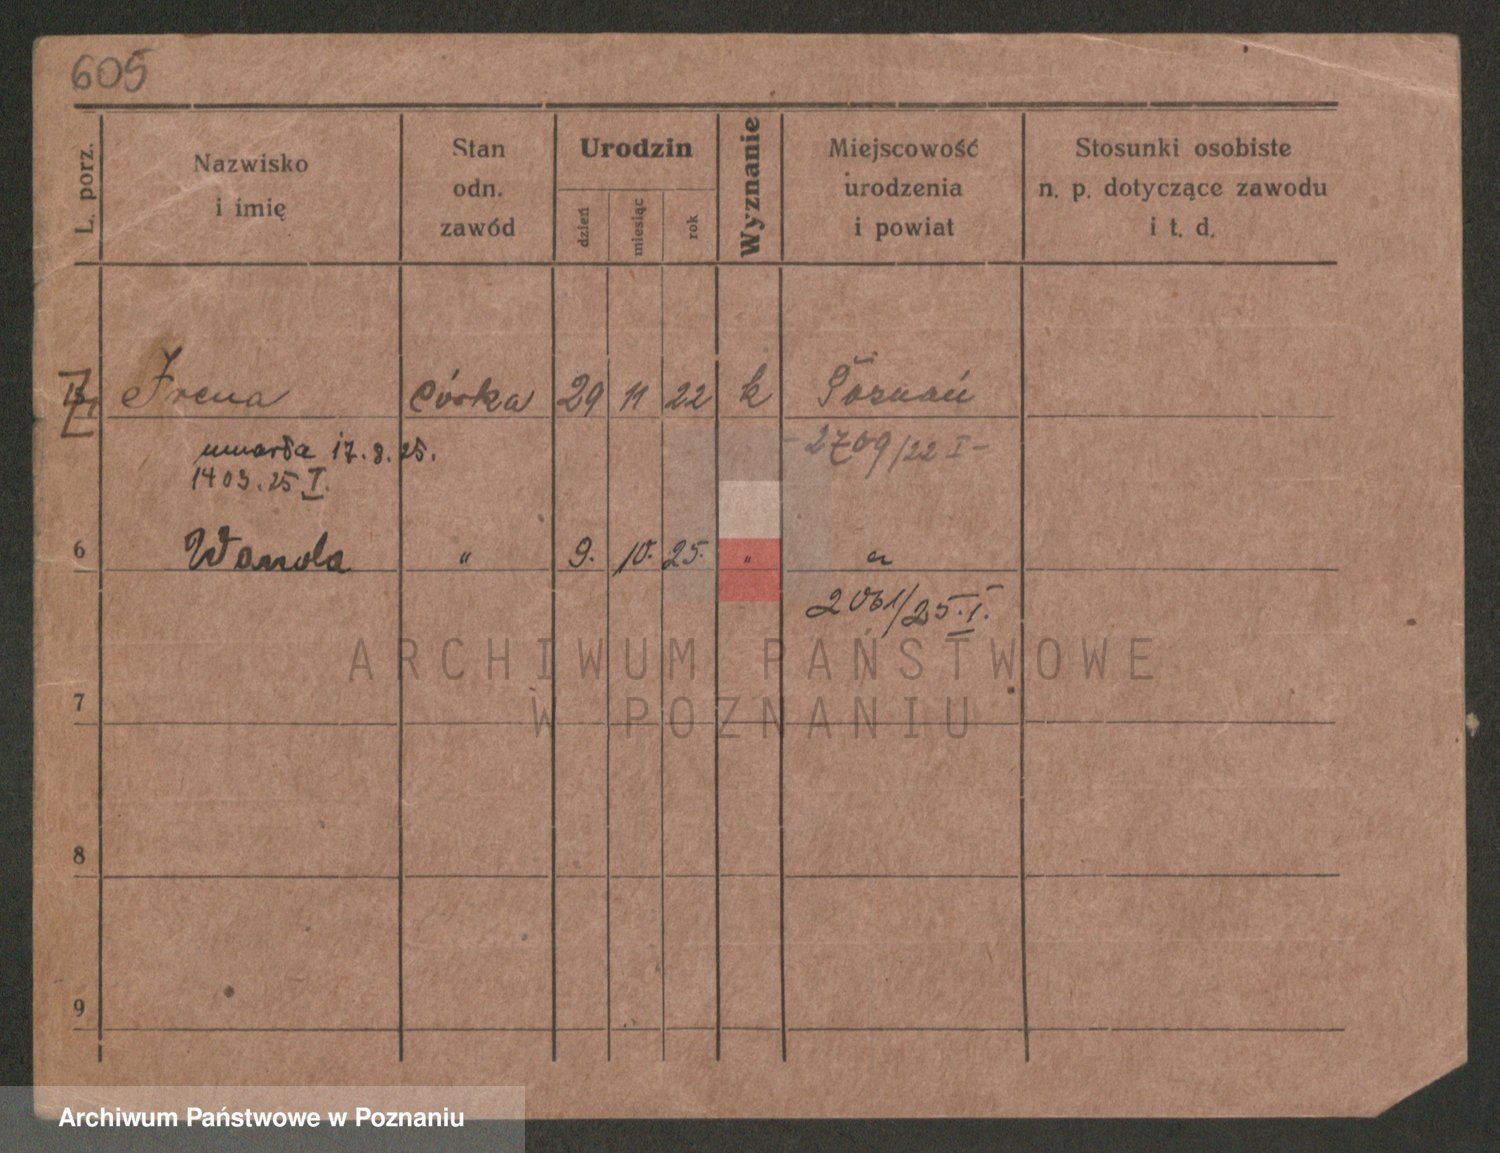 605
L. porz.
Nazwisko
i imię
Stan
odn.
zawód
Urodzin
dzień
miesiąc
rok
Wyznanie
Miejscowość
urodzenia
i powiat
Stosunki osobiste
n. p. dotyczące zawodu
i t. d.
Irena córka 29 11 22 k Poznań
umarła 17.8.25. 2709/22 I-
1403.25 I.
6 Wanda " 9. 10. 25. " "
2061/25.I.
7
8
9
ARCHIWUM PAŃSTWOWE
W POZNANIU
Archiwum Państwowe w Poznaniu